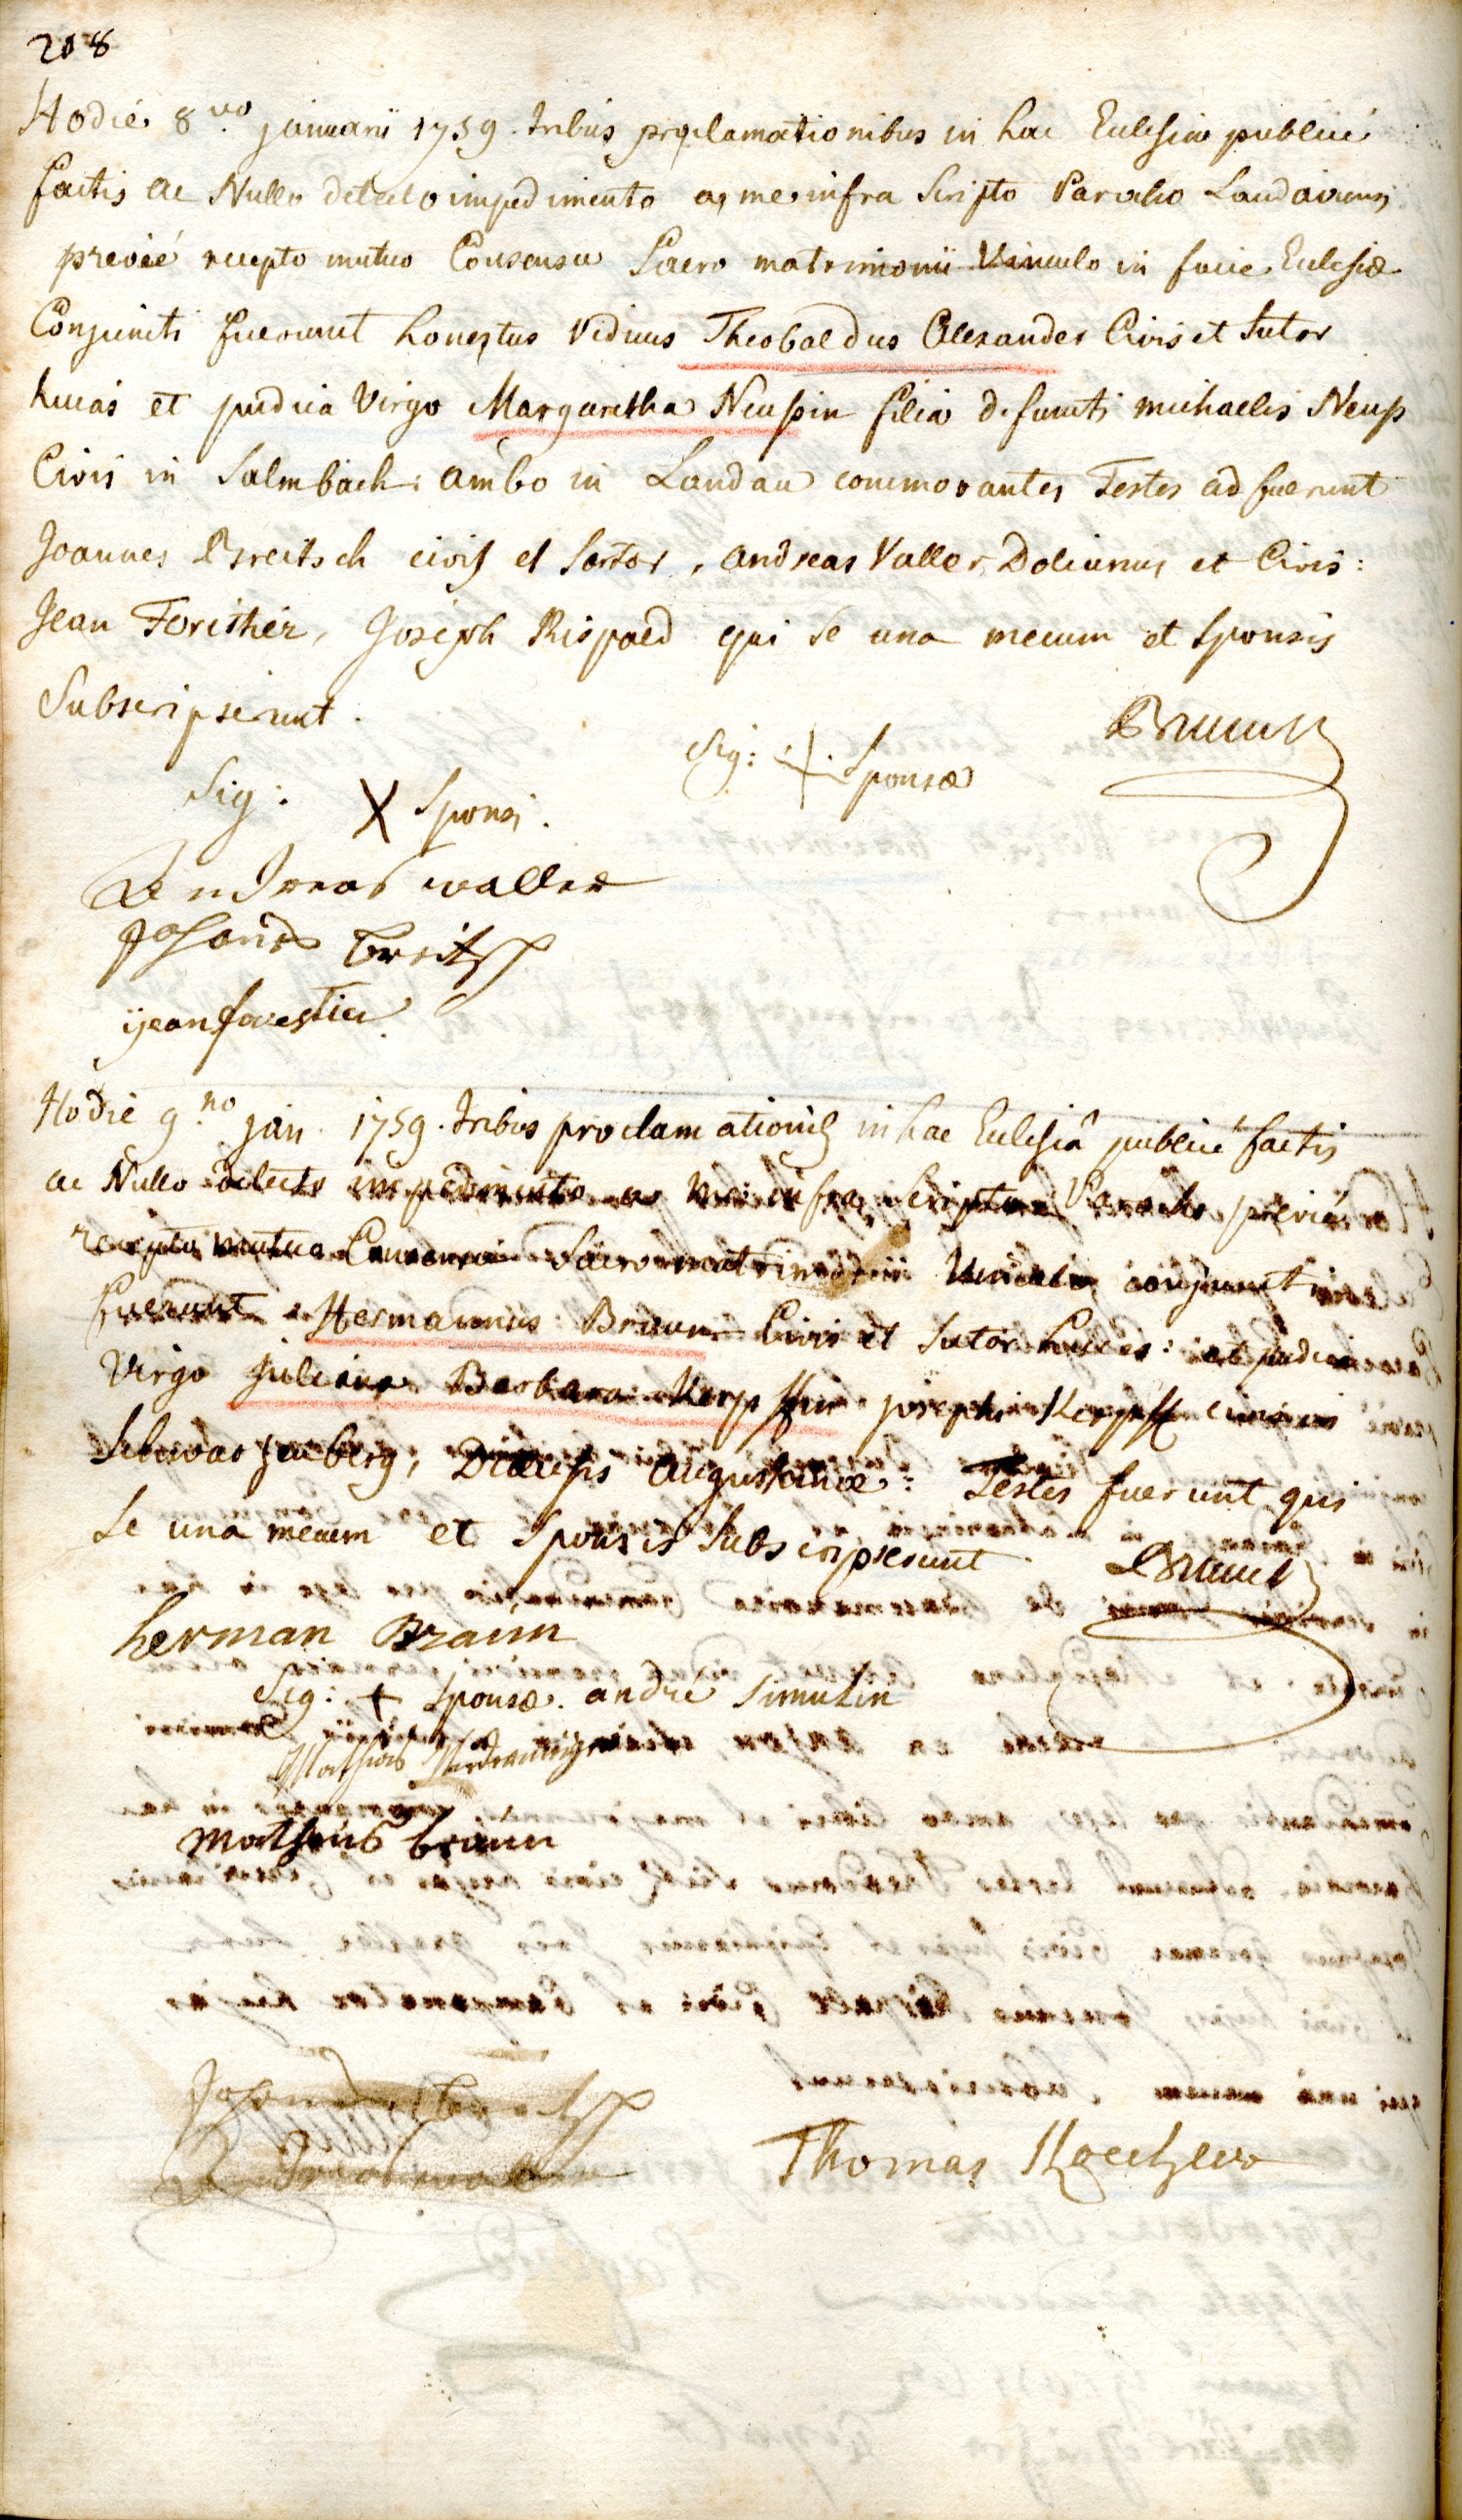 208
Hodie 8vo januarii 1759. tribus proclamationibus in hac Eclesia publicé
factis ac Nullo detecto impedimento a me infra Scripto Parocho Landaviensi
previé recepto mutuo Consensu Sacro matrimonii Vinculo in facie Eclesiæ
Conjuncti fuerunt honestus Viduus Theobaldus Alexander Civis et Sutor
hucas et pudica Virgo Margaretha Neußin filia defuncti michaelis Neuß
Civis in Salmbach: ambo in Landau commorantes Testes adfuerunt
Joannes Breitsch civis et Sartor, andreas Valler Doliarius et Civis:
Jean Foristhér, Joseph Rispaed qui se una mecum et Sponsis
Subscripserunt.
Sig: + Sponsæ
Sig: X Sponsi.
Andreas waller
Johannes breitsch
ÿean forestier
Hodie 9no jan. 1759. tribus proclamationib in hac Eclesiâ publicé factis
ac Nullo detecto impedimento a me infra Scripto Parocho previé
recepto mutuo Consensu Sacro matrimonii Vinculo conjuncti
fuerunt Hermannus Braun Civis et Sutor hucas: et pudica
Virgo Juliana Barbara Kerpffin josephi Kerpff civis in
Schwarzenberg, Diœcesis Augustanæ: Testes fuerunt qui
se una mecum et Sponsis Subscripserunt.
herman Braun
Sig: + Sponsæ. andré Simulin
Mathias
Mathias braun
Thomas